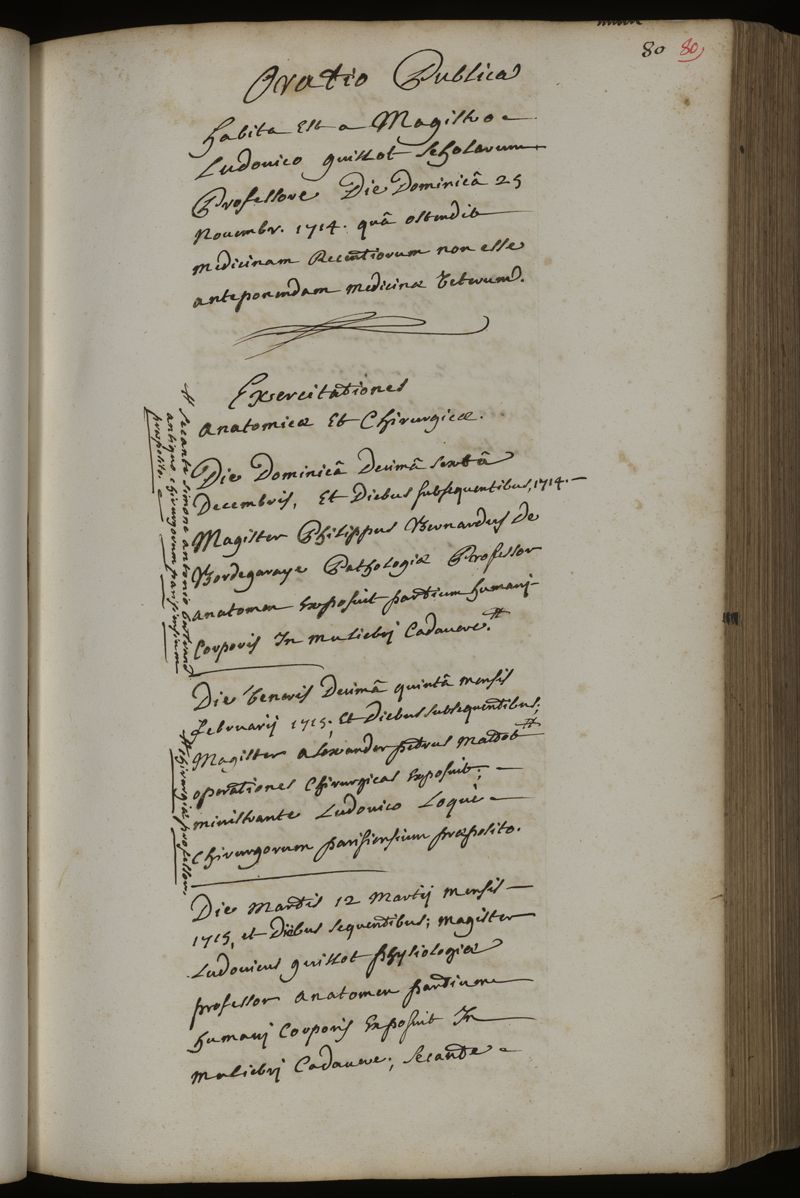 80 80
Oratio Publica
habita Est a Magistro
Ludovico guillot scholarum
Professore Die Dominicâ 25
Novembr. 1714. quâ ostendit
medicinam Recentiorum non esse
anteponendam medicinæ veterum.
Exercitationes
Anatomicæ Et Chirurgicæ.
Die Dominicâ Decimâ sextâ
Decembris, Et Diebus subsequentibus, 1714.
Magister Philippus Bernardus De
Bordegaraye Pathologiæ Professor
anatomen Exposuit partium humanj
Corporis In muliebrj Cadavere.#
# secante simone antonio bertrand
antiquo chirurgorum parisiensium
præposito.
Die Veneris Decimâ quintâ mensis
februarij 1715; Et Diebus subsequentibus;
Magister alexander petrus mattot#
operationes Chirurgicas Exposuit;
ministrante Ludovico Loque
Chirurgorum parisiensium præposito.
# Chirurgiæ professor.
Die martis 12 Martij mensis
1715, et Diebus sequentibus; magister
Ludovicus guillot physiologiæ
professor anatomen partium
humanj Corporis Exposuit In
muliebrj Cadavere; secante